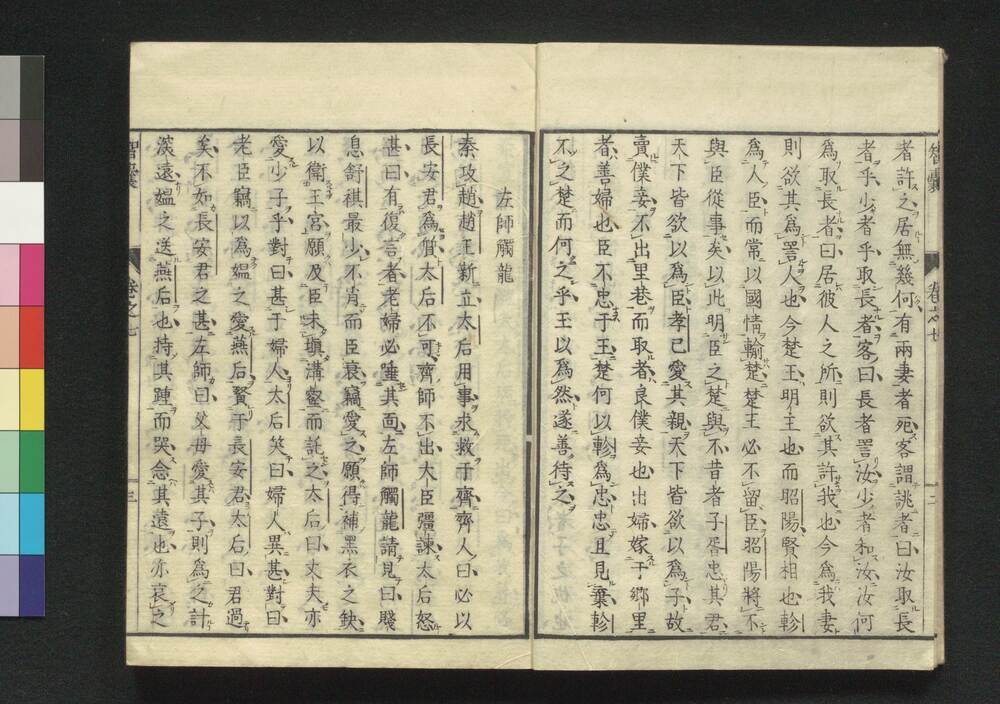 智囊 卷之七 二
者許之居無幾何有兩妻者死客謂誂者曰汝取長
者乎少者乎取長者客曰長者詈汝少者和汝汝何
為取長者曰居彼人之所則欲其許我也今為我妻
則欲其為詈人也今楚王明主也而昭陽賢相也軫
為人臣而常以國情輸楚楚王必不留臣昭陽將不
與臣從事矣以此明臣之楚與不昔者子胥忠其君
天下皆欲以為臣孝已愛其親天下皆欲以為子故
賣僕妾不出里巷而取者良僕妾也出婦嫁于鄉里
者善婦也臣不忠于王楚何以軫為忠忠且見棄軫
不之楚而何之乎王以為然遂善待之
左師觸龍
秦攻趙趙王新立太后用事求救于齊齊人曰必以
長安君為質太后不可齊師不出大臣彊諫太后怒
甚曰有復言者老婦必唾其面左師觸龍請見曰賤
息舒祺最少不肖而臣衰竊愛之願得補黑衣之缺
以衛王宮願及臣未塡溝壑而託之太后曰丈夫亦
愛少子乎對曰甚于婦人太后笑曰婦人異甚對曰
老臣竊以為媼之愛燕后賢于長安君太后曰君過
矣不如長安君之甚左師曰父母愛其子則為之計
深遠媼之送燕后也持其踵而哭念其遠也亦哀之
智囊 卷之七 三